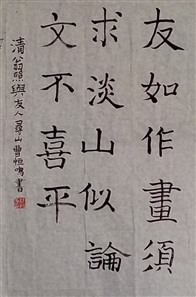 友如作畫須
求淡山似論
文不喜平
清翁照與友人尋山曹恒鳴書